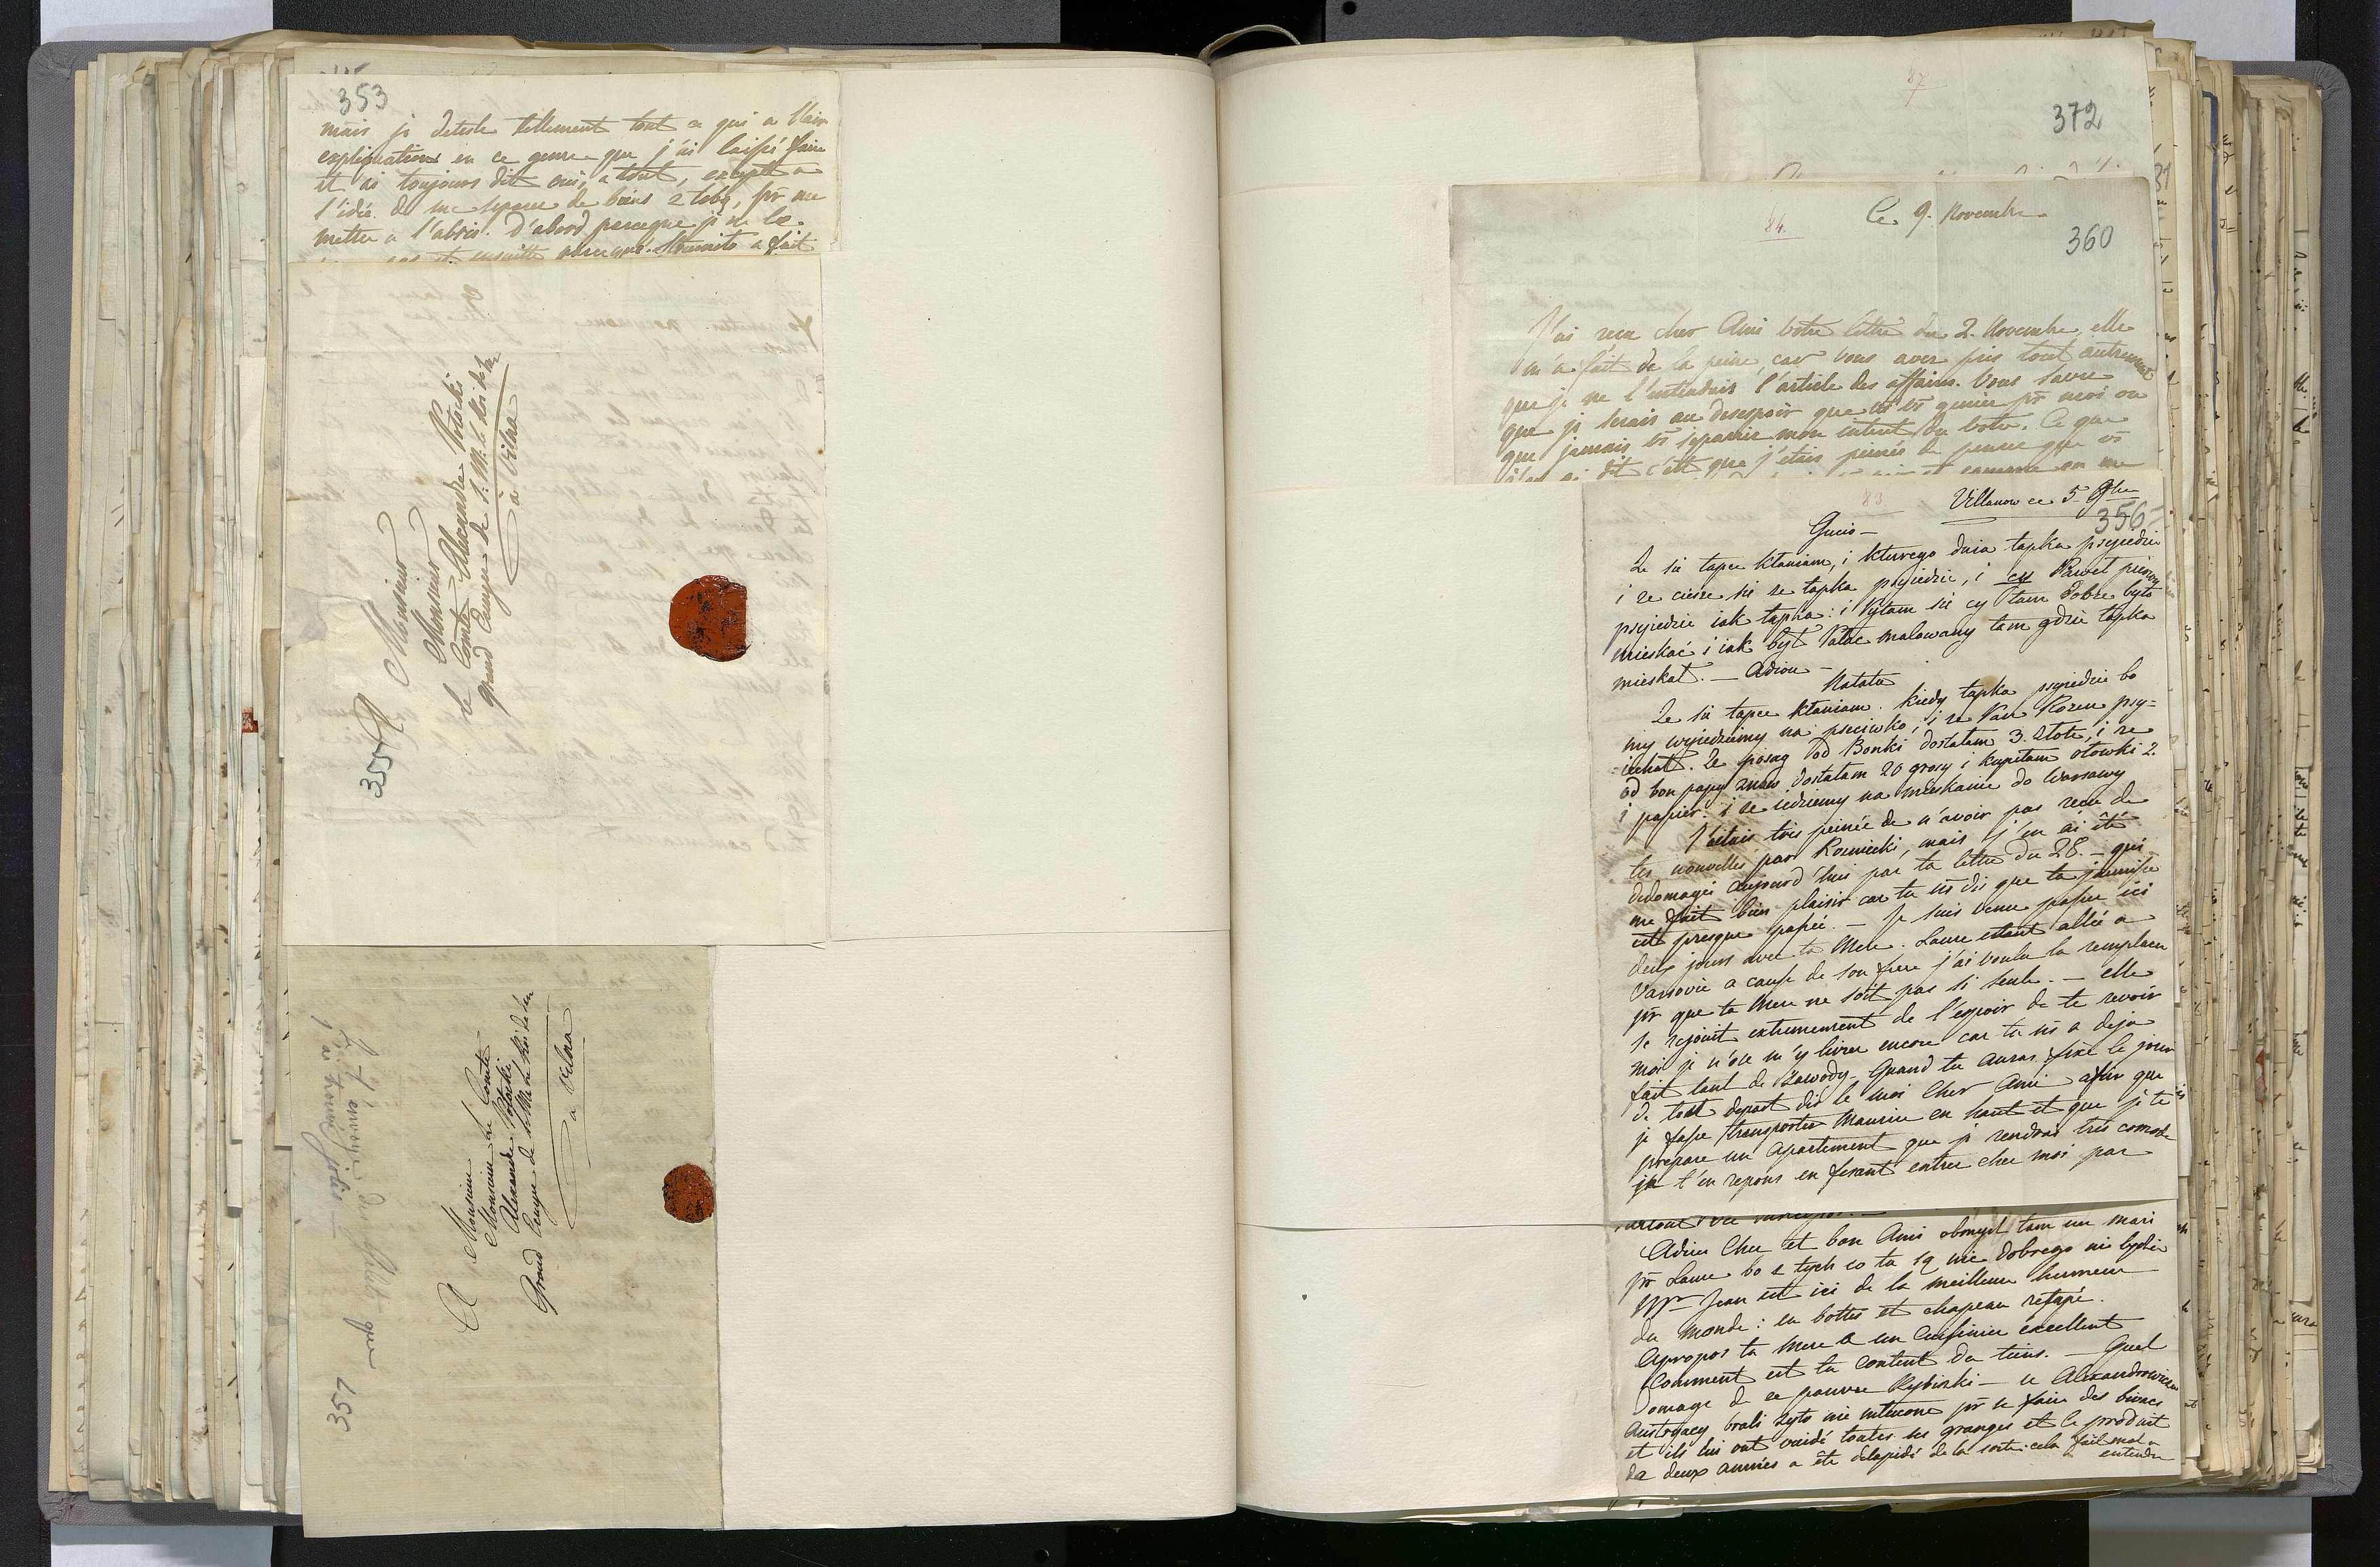 353
mais je deteste tellement tout ce qui a l'air
explications en ce genre que j'ai laissé faire
et ai toujours dit oui, a tout, excepté a
l'idée de me separer de biens
mettre a l'abris. D'abord parceque je ne le
a fait
355
Monsieur
Monsieur
le Comte Alexandre Potocki
grand Ecuyer de S. M. le Roi de Saxe
à Vilna
A Monsieur
Monsieur le Comte
Alexandre Potocki
Grand Ecuyer de S. M. le Roi de Saxe
a Vilna
357
87
372
84.
Ce 9. Novembre
360
J'ai reçu cher Ami votre lettre du 2. Novembre, elle
m'a fait de la peine, car vous avez pris tout autrement
que je ne l'entendais l'article des affaires. Vous savez
que je serais au desespoir que vs vs geniez pr moi ou
que jamais vs separiez mon interet du votre. Ce que
j'en ai dit c'est que j'etais peinée de penser que vs
83
Villanow ce 5 9bre
356
Gucio —
Ze sie tapce kłaniam, i kturego dnia tapka psyiedzie
i ze ciesze sie ze tapka psyiedzie, i cy Paweł pierwy
psyiedzie iak tapka: i Pytam sie cy tam dobze było
mieskać i iak był Pałac malowany tam gdzie tapka
mieskał. — Adieu —
Natata
Ze sie tapce kłaniam. kiedy tapka psyiedzie bo
my wyiedziemy na psieciwko, i ze Pan Rozen psy=
iechał. Ze posag od Bonki dostałam 3. złote, i ze
od bon papy znow dostałam 20 grosy i kupiłam ołowki 2.
i papier. i ze iedziemy na mieskanie do Warsawy
J'étais très peinée de n'avoir pas reçu de
tes nouvelles par Rozniecki, mais j'en ai été
dedomagée aujourd'hui par ta lettre du 28. — qui
me fait bien plaisir car tu ns dis que ta jaunisse
est presque passée. — Je suis venue passer ici
deux jours avec ta Mere. Laure etant allée a
Varsovie a cause de son frere j'ai voulu la remplacer
pr que ta Mere ne soit pas si seule. — elle
se rejouit extremement de l'espoir de te revoir
moi je n'ose m'y livrer encore car tu ns a deja
fait tant de zawody. Quand tu auras fixé le jour
de ton depart dis le moi Cher Ami afin que
je fasse transporter Maurice en haut et que je te
prepare un apartement que je rendrai très comode
je t'en repons en fesant entrer chez moi par
Adieu Cher et bon Ami obmysl tam un mari
pr Laure bo z tych co tu są nic dobrego nie bydzie
Mr Jean est ici de la meilleure humeur
du monde: en bottes et chapeau retapé.
Apropos ta mere a un Cuisinier excellent
Comment est tu content du tiens. — Quel
domage de ce pauvre Rybinski — a Alexandrowice
Austryacy brali zyto nie młucone pr se faire des bivacs
et ils lui ont vuidé toutes ses granges et le produit
de deux années a été delapidé de la sorte: cela fait mal a
entendre